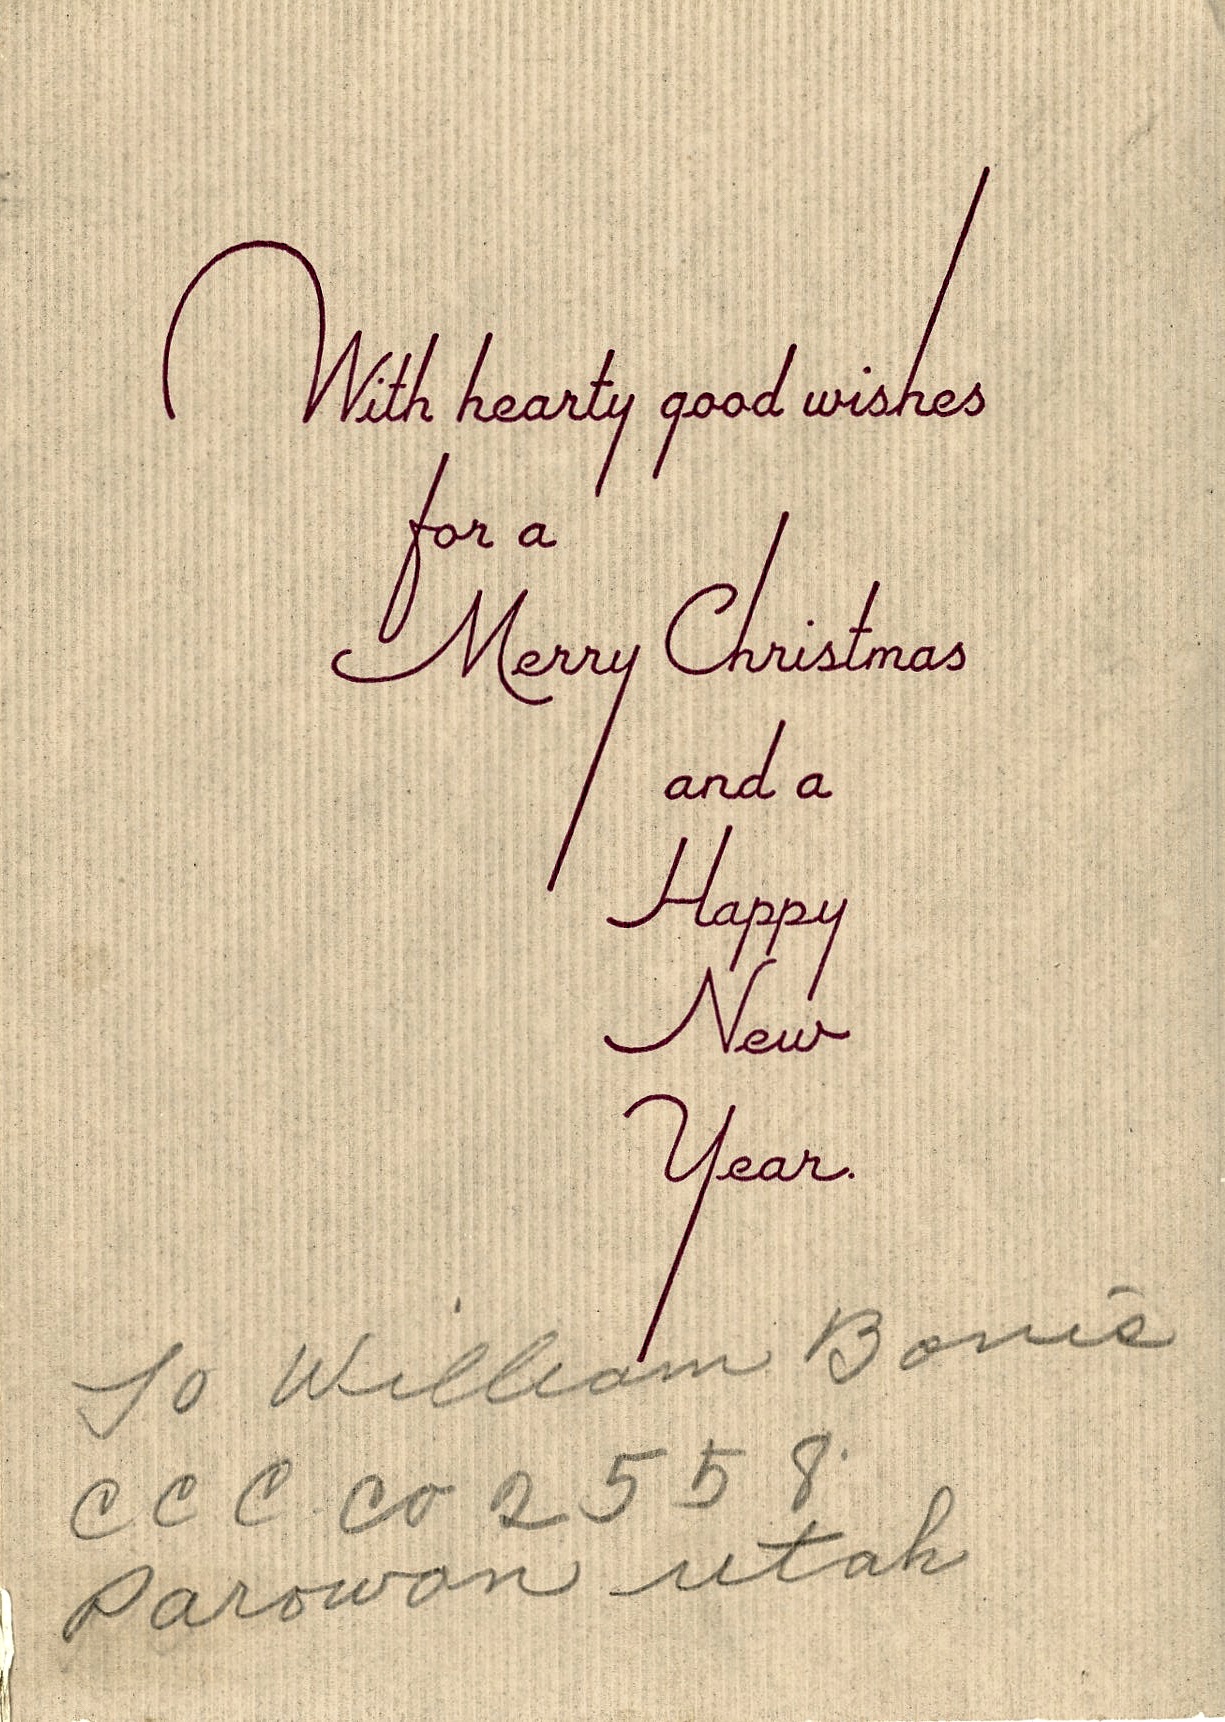 With hearty good wishes
for a
Merry Christmas
and a
Happy
New
Year.
To William
CCC Co 2558
Parowan Utah